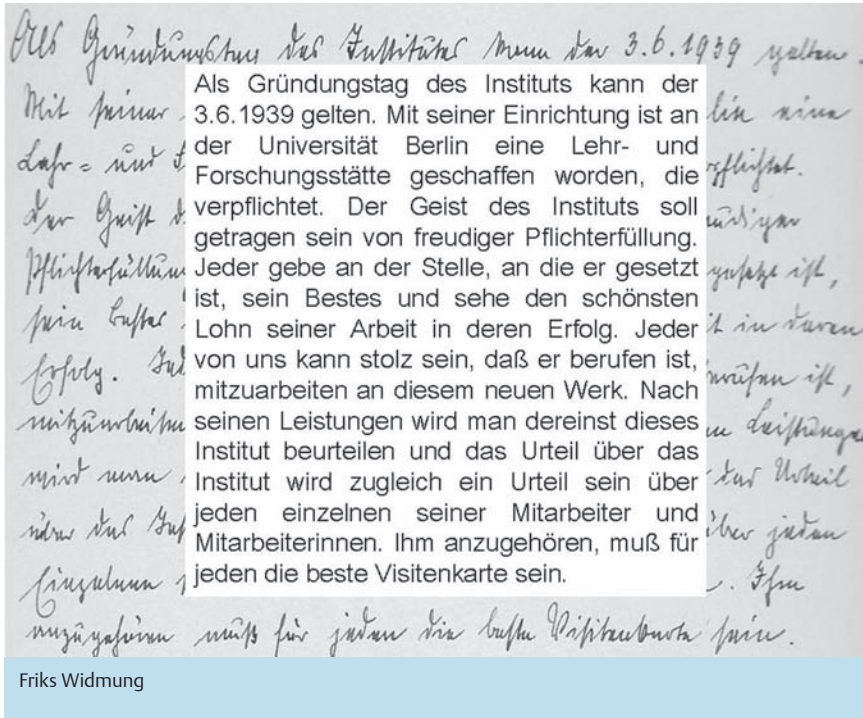 Als Gründungstag des Institutes kann der 3.6.1939 gelten.
Mit seiner lin eine
Lehr- und rpflichtet.
Der Geist d eudiger
Pflichterfüllun gesetzt ist,
sein Bestes it in deren
Erfolg. Jed berufen ist,
mitzuarbeiten Leistungen
wird man das Urteil
über das Ins über jeden
Einzelnen . Ihm
anzugehören muß für jeden die beste Visitenkarte sein.
Als Gründungstag des Instituts kann der
3.6.1939 gelten. Mit seiner Einrichtung ist an
der Universität Berlin eine Lehr- und
Forschungsstätte geschaffen worden, die
verpflichtet. Der Geist des Instituts soll
getragen sein von freudiger Pflichterfüllung.
Jeder gebe an der Stelle, an die er gesetzt
ist, sein Bestes und sehe den schönsten
Lohn seiner Arbeit in deren Erfolg. Jeder
von uns kann stolz sein, daß er berufen ist,
mitzuarbeiten an diesem neuen Werk. Nach
seinen Leistungen wird man dereinst dieses
Institut beurteilen und das Urteil über das
Institut wird zugleich ein Urteil sein über
jeden einzelnen seiner Mitarbeiter und
Mitarbeiterinnen. Ihm anzugehören, muß für
jeden die beste Visitenkarte sein.
Friks Widmung